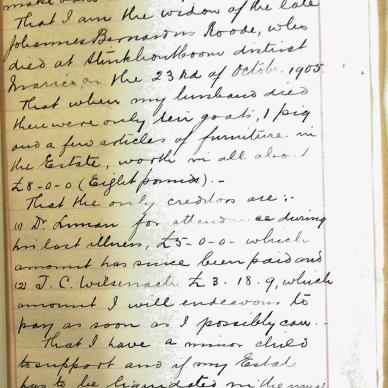 make
That I am the widow of the late
Johannes Bernardus Roode, who
died at Stinkhoutboom district
Marico on the 23rd of October 1905
That when my husband died
there were only ten goats, 1 pig
and a few articles of furniture in
the Estate, worth in all about
£8-0-0 (Eight pounds).-
That the only creditors are:-
(1) Dr. for attendance during
his last illness, £5-0-0- which
amount has since been paid and
(2) J. C. £3.18.9, which
amount I will endeavour to
pay as soon as I possibly can.-
That I have a minor child
to support and if my Estate
has to be liquidated in the usual